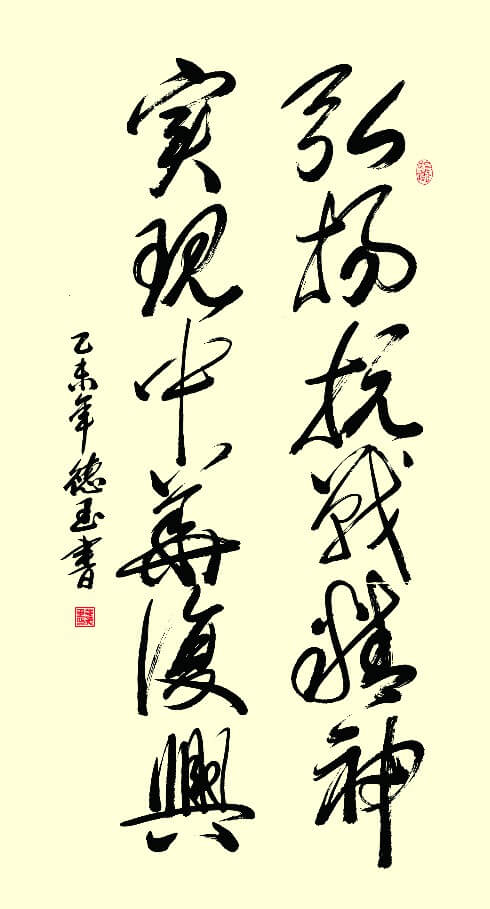 弘扬抗戰精神
实現中華復興
乙未年德玉書